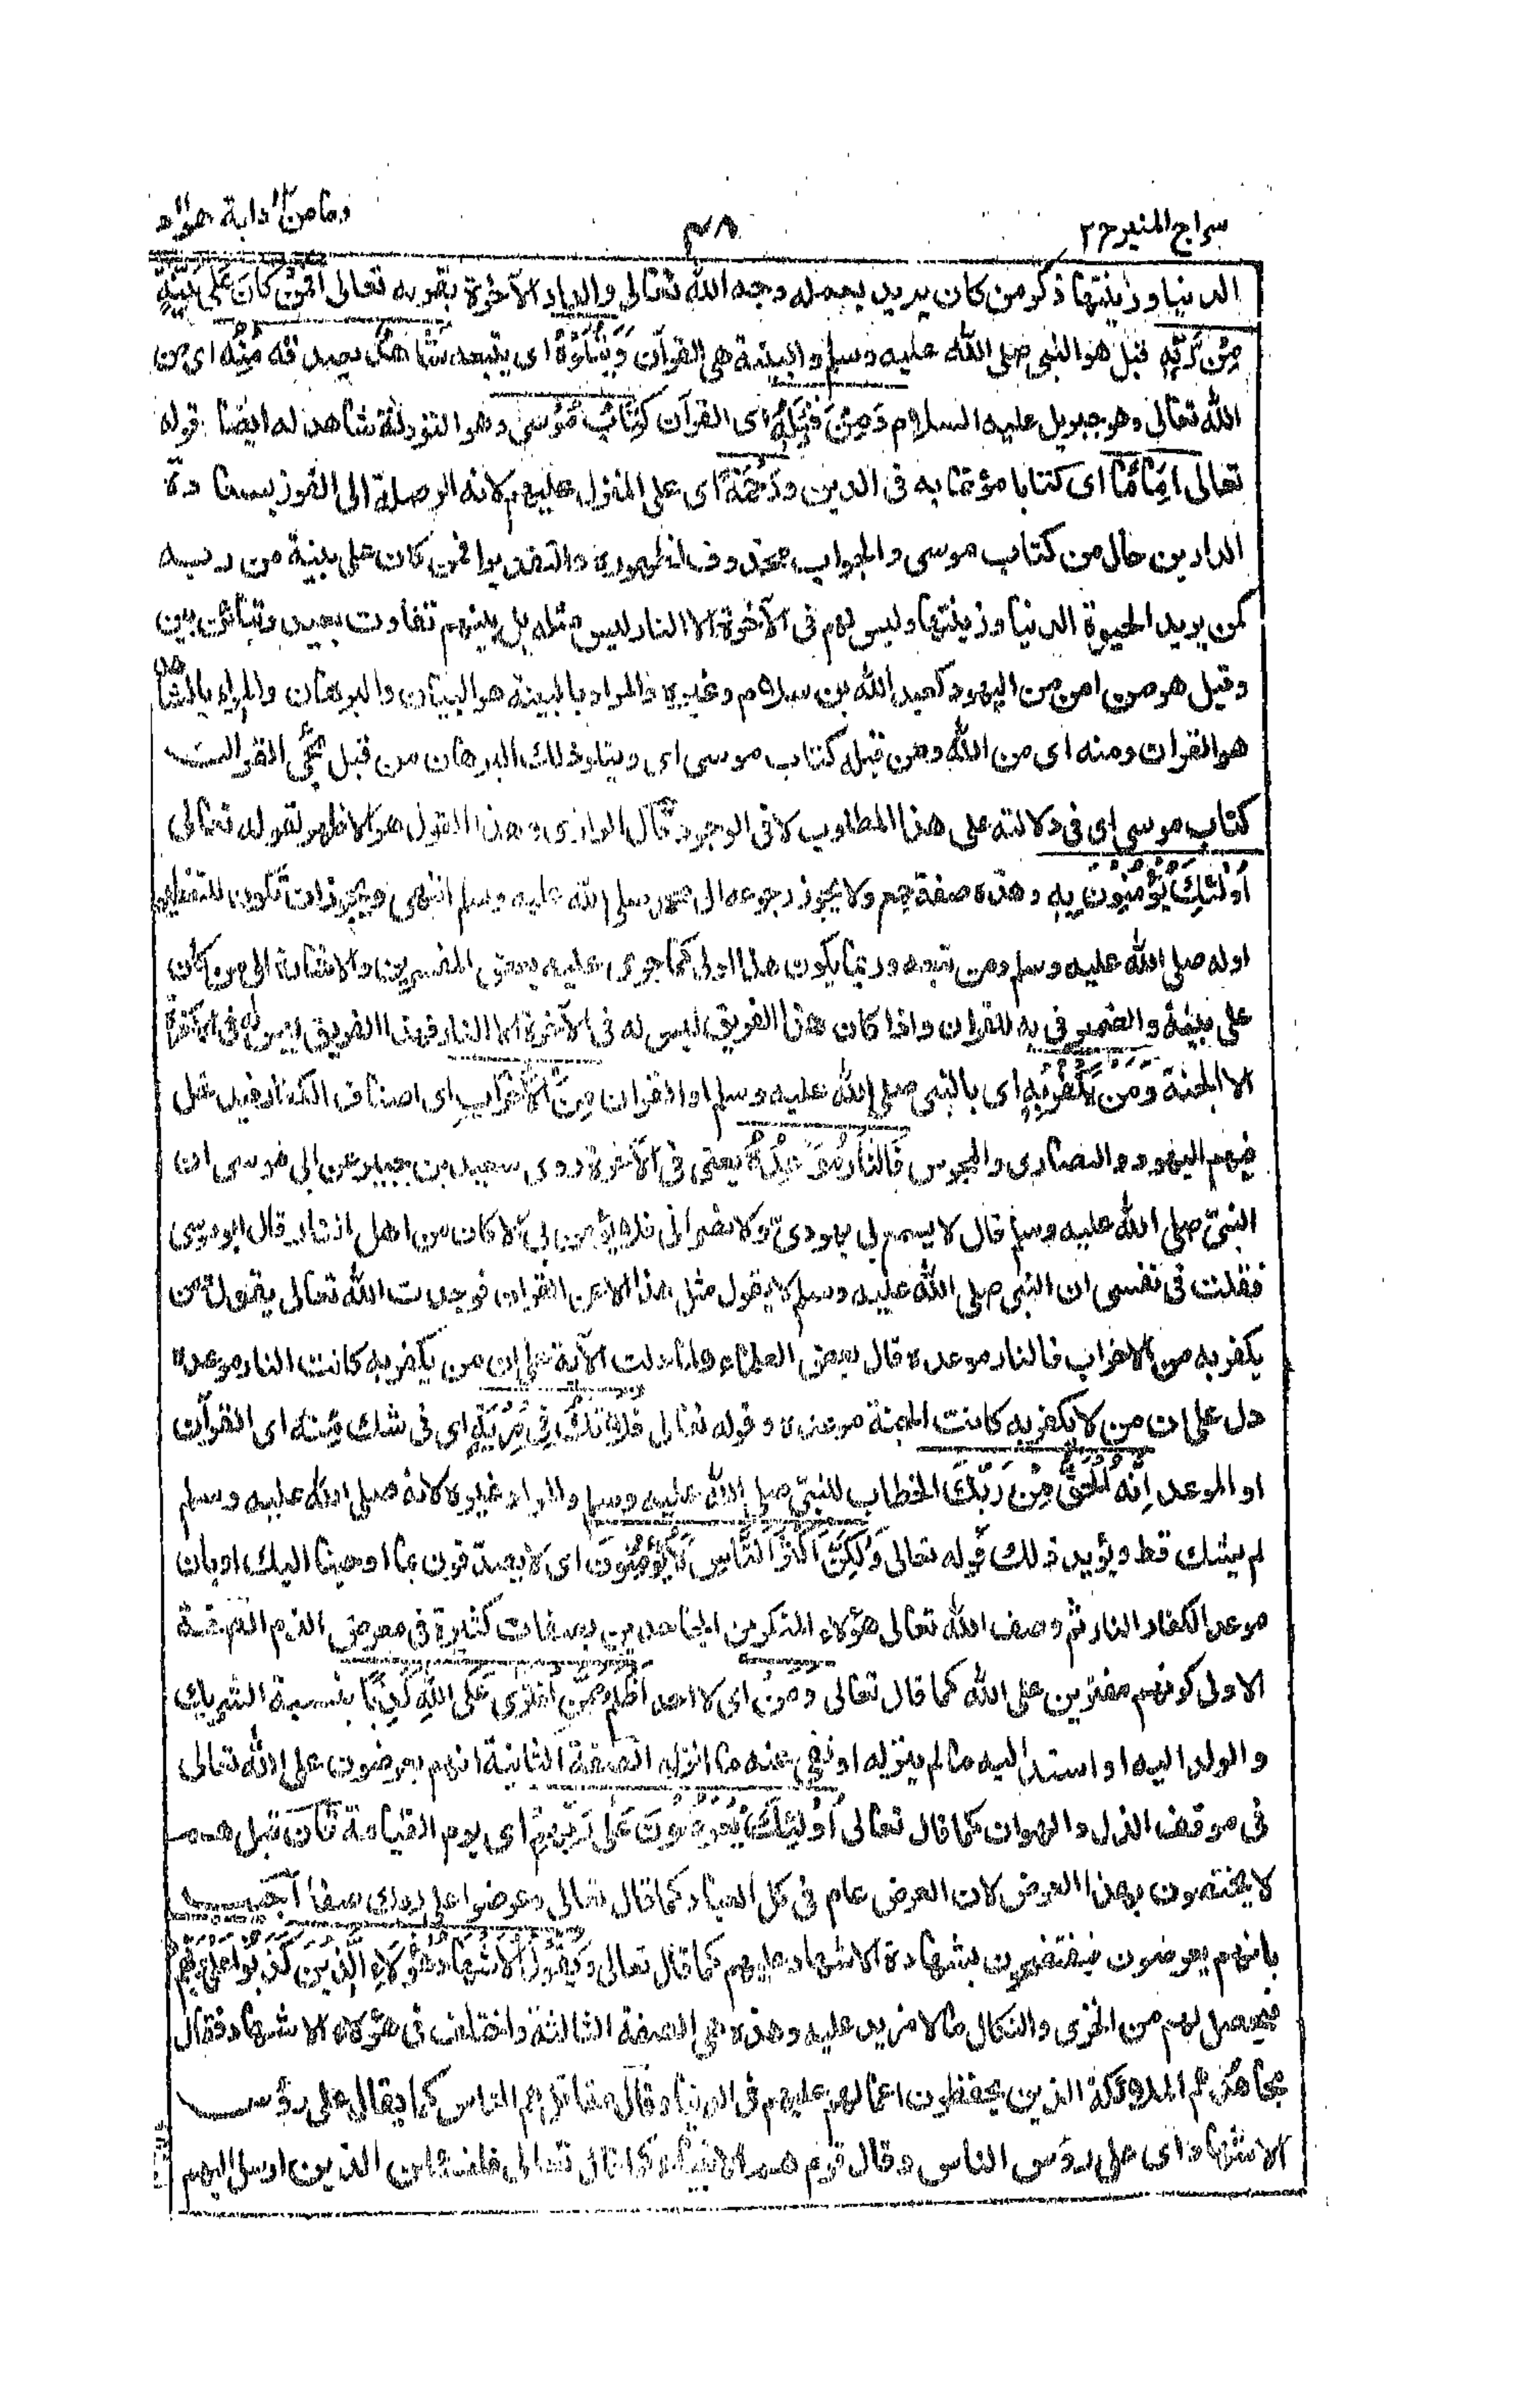 سراج المنير ج٢
٤٨
وما من دابة هود
الدنيا وزينتها ذكر من كان يريد بعمله وجه الله تعالى والدار الآخرة بقوله تعالى أَفَمَنْ كَانَ عَلَى بَيِّنَةٍ
مِّنْ رَّبِّهٖ قيل هو النبى صلى الله عليه وسلم والبينة هى القرآن وَيَتْلُوْهُ اى يتبعه شَاهِدٌ يصدقه مِّنْهُ اى من
الله تعالى وهو جبريل عليه السلام وَمِنْ قَبْلِهٖ اى القرآن كِتَابُ مُوْسٰى وهو التورٰىة شاهد له ايضا قوله
تعالى اِمَامًا اى كتابا مؤتما به فى الدين وَرَحْمَةً اى على المنزل عليهم لانه الوصلة الى الفوز بسعادة
الدارين حال من كتاب موسى والجواب محذوف لظهوره والتقدير افمن كان على بينة من ربه
كمن يريد الحيوة الدنيا وزينتها وليس لهم فى الآخرة الا النار ليس مثله بل بينهم تفاوت بعيد وتباين بين
وقيل هو من امن من اليهود كعبد الله بن سلام وغيره والمراد بالبينة هو البيان والبرهان والمراد بالشاهد
هو القران ومنه اى من الله ومن قبله كتاب موسى اى ويتلو ذلك البرهان من قبل مجئ القران
كتاب موسى اى فى دلالته على هذا المطلوب لا فى الوجود قال الرازى وهذا القول هو الاظهر لقوله تعالى
اُولٰئِكَ يُؤْمِنُوْنَ بِهٖ وهذه صفة جمع ولا يجوز رجوعه الى محمد صلى الله عليه وسلم انتهى ويجوز ان تكون للتعظيم
اوله صلى الله عليه وسلم ومن تبعه وربما يكون هذا اولى كما جرى عليه بعض المفسرين والاشارة الى من كان
على بينة والضمير فى به للقران واذا كان هذا الفريق ليس له فى الآخرة الا النار فهذا الفريق ليس له فى الآخرة
الا الجنة وَمَنْ يَّكْفُرْ بِهٖ اى بالنبى صلى الله عليه وسلم او القران مِنَ الْاَحْزَابِ اى اصناف الكفار فيدخل
فيهم اليهود والنصارى والمجوس فَالنَّارُ مَوْعِدُهٗ يعنى فى الآخرة روى سعيد بن جبير عن ابى موسى ان
النبى صلى الله عليه وسلم قال لا يسمع بى يهودى ولا نصرانى فلا يؤمن بى الا كان من اهل النار قال ابو موسى
فقلت فى نفسى ان النبى صلى الله عليه وسلم لا يقول مثل هذا الا عن القران فوجدت الله تعالى يقول ومن
يكفر به من الاحزاب فالنار موعده قال بعض العلماء ولما دلت الآية على ان من يكفر به كانت النار موعده
دل على ان من لا يكفر به كانت الجنة موعده وقوله تعالى فَلَا تَكُ فِىْ مِرْيَةٍ اى فى شك مِّنْهُ اى القرآن
او الموعد اِنَّهُ الْحَقُّ مِنْ رَّبِّكَ الخطاب للنبى صلى الله عليه وسلم والمراد غيره لانه صلى الله عليه وسلم
لم يشك قط ويؤيد ذلك قوله تعالى وَلٰكِنَّ اَكْثَرَ النَّاسِ لَا يُؤْمِنُوْنَ اى لا يصدقون بما اوحينا اليك او بان
موعد الكفار النار ثم وصف الله تعالى هؤلاء المنكرين الجاحدين بصفات كثيرة فى معرض الذم الصفة
الاولى كونهم مفترين على الله كما قال تعالى وَمَنْ اى لا احد اَظْلَمُ مِمَّنِ افْتَرٰى عَلَى اللهِ كَذِبًا بنسبة الشريك
والولد اليه او اسند اليه ما لم ينزله او نفى عنه ما انزله الصفة الثانية انهم يعرضون على الله تعالى
فى موقف الذل والهوان كما قال تعالى اُولٰئِكَ يُعْرَضُوْنَ عَلٰى رَبِّهِمْ اى يوم القيامة فان قيل هم
لا يختصون بهذا العرض لان العرض عام فى كل العباد كما قال تعالى وعرضوا على ربك صفا اجيب
بانهم يعرضون فيفتضحون بشهادة الاشهاد عليهم كما قال تعالى وَيَقُوْلُ الْاَشْهَادُ هٰؤُلَاءِ الَّذِيْنَ كَذَبُوْا عَلٰى رَبِّهِمْ
فيحصل لهم من الخزى والنكال ما لا مزيد عليه وهذه هى الصفة الثالثة واختلف فى هؤلاء الاشهاد فقال
مجاهد هم الملائكة الذين يحفظون اعمالهم عليهم فى الدنيا وقال مقاتل هم الناس كما يقال على رؤس
الاشهاد اى على رؤس الناس وقال قوم هم الانبياء كما قال تعالى فلنسئلن الذين ارسل اليهم